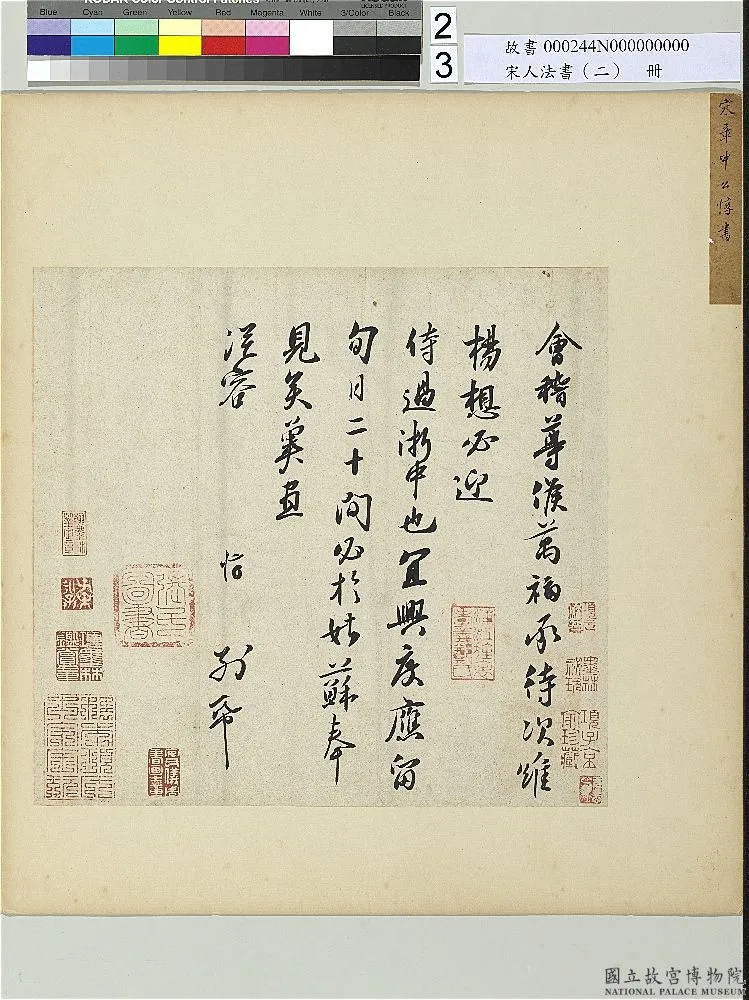 KODAK Color Control Patches
LICENSED PRODUCT
Blue Cyan Green Yellow Red Magenta White 3/Color Black
2
3
故書 000244N000000000
宋人法書（二） 冊
宋章申公惇書
會稽尊候萬福承待次維
楊想必迎
侍過浙中也宜興度應留
旬日二十間必於姑蘇奉
見矣冀盡
從容 惇 別帋
墨林祕玩
項子京家珍藏
國立故宮博物院
NATIONAL PALACE MUSEUM